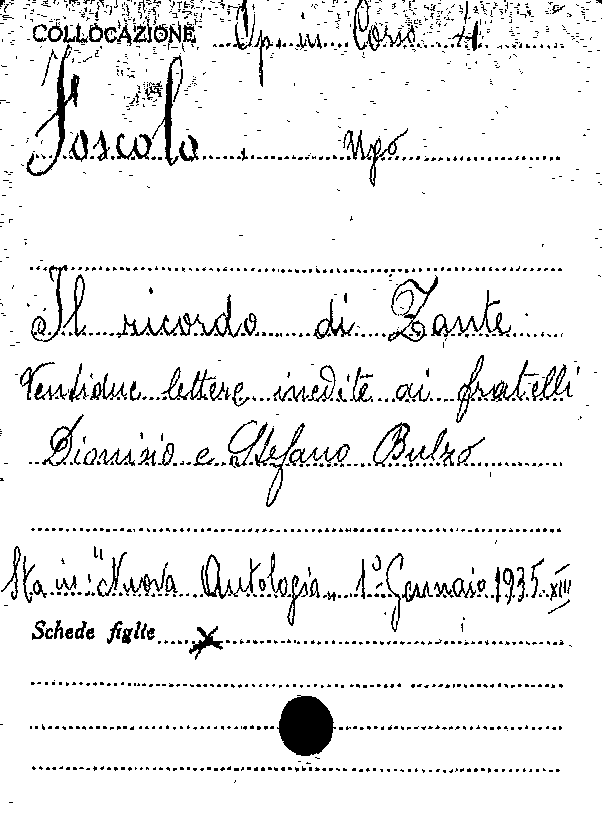 COLLOCAZIONE Op. in Corso 4
Foscolo. Ugo
Il ricordo di Zante.
Ventidue lettere inedite ai fratelli
Dionisio e Stefano Bulzo
Sta in: "Nuova Antologia„ 1° Gennaio 1935. XIII
Schede figlie X